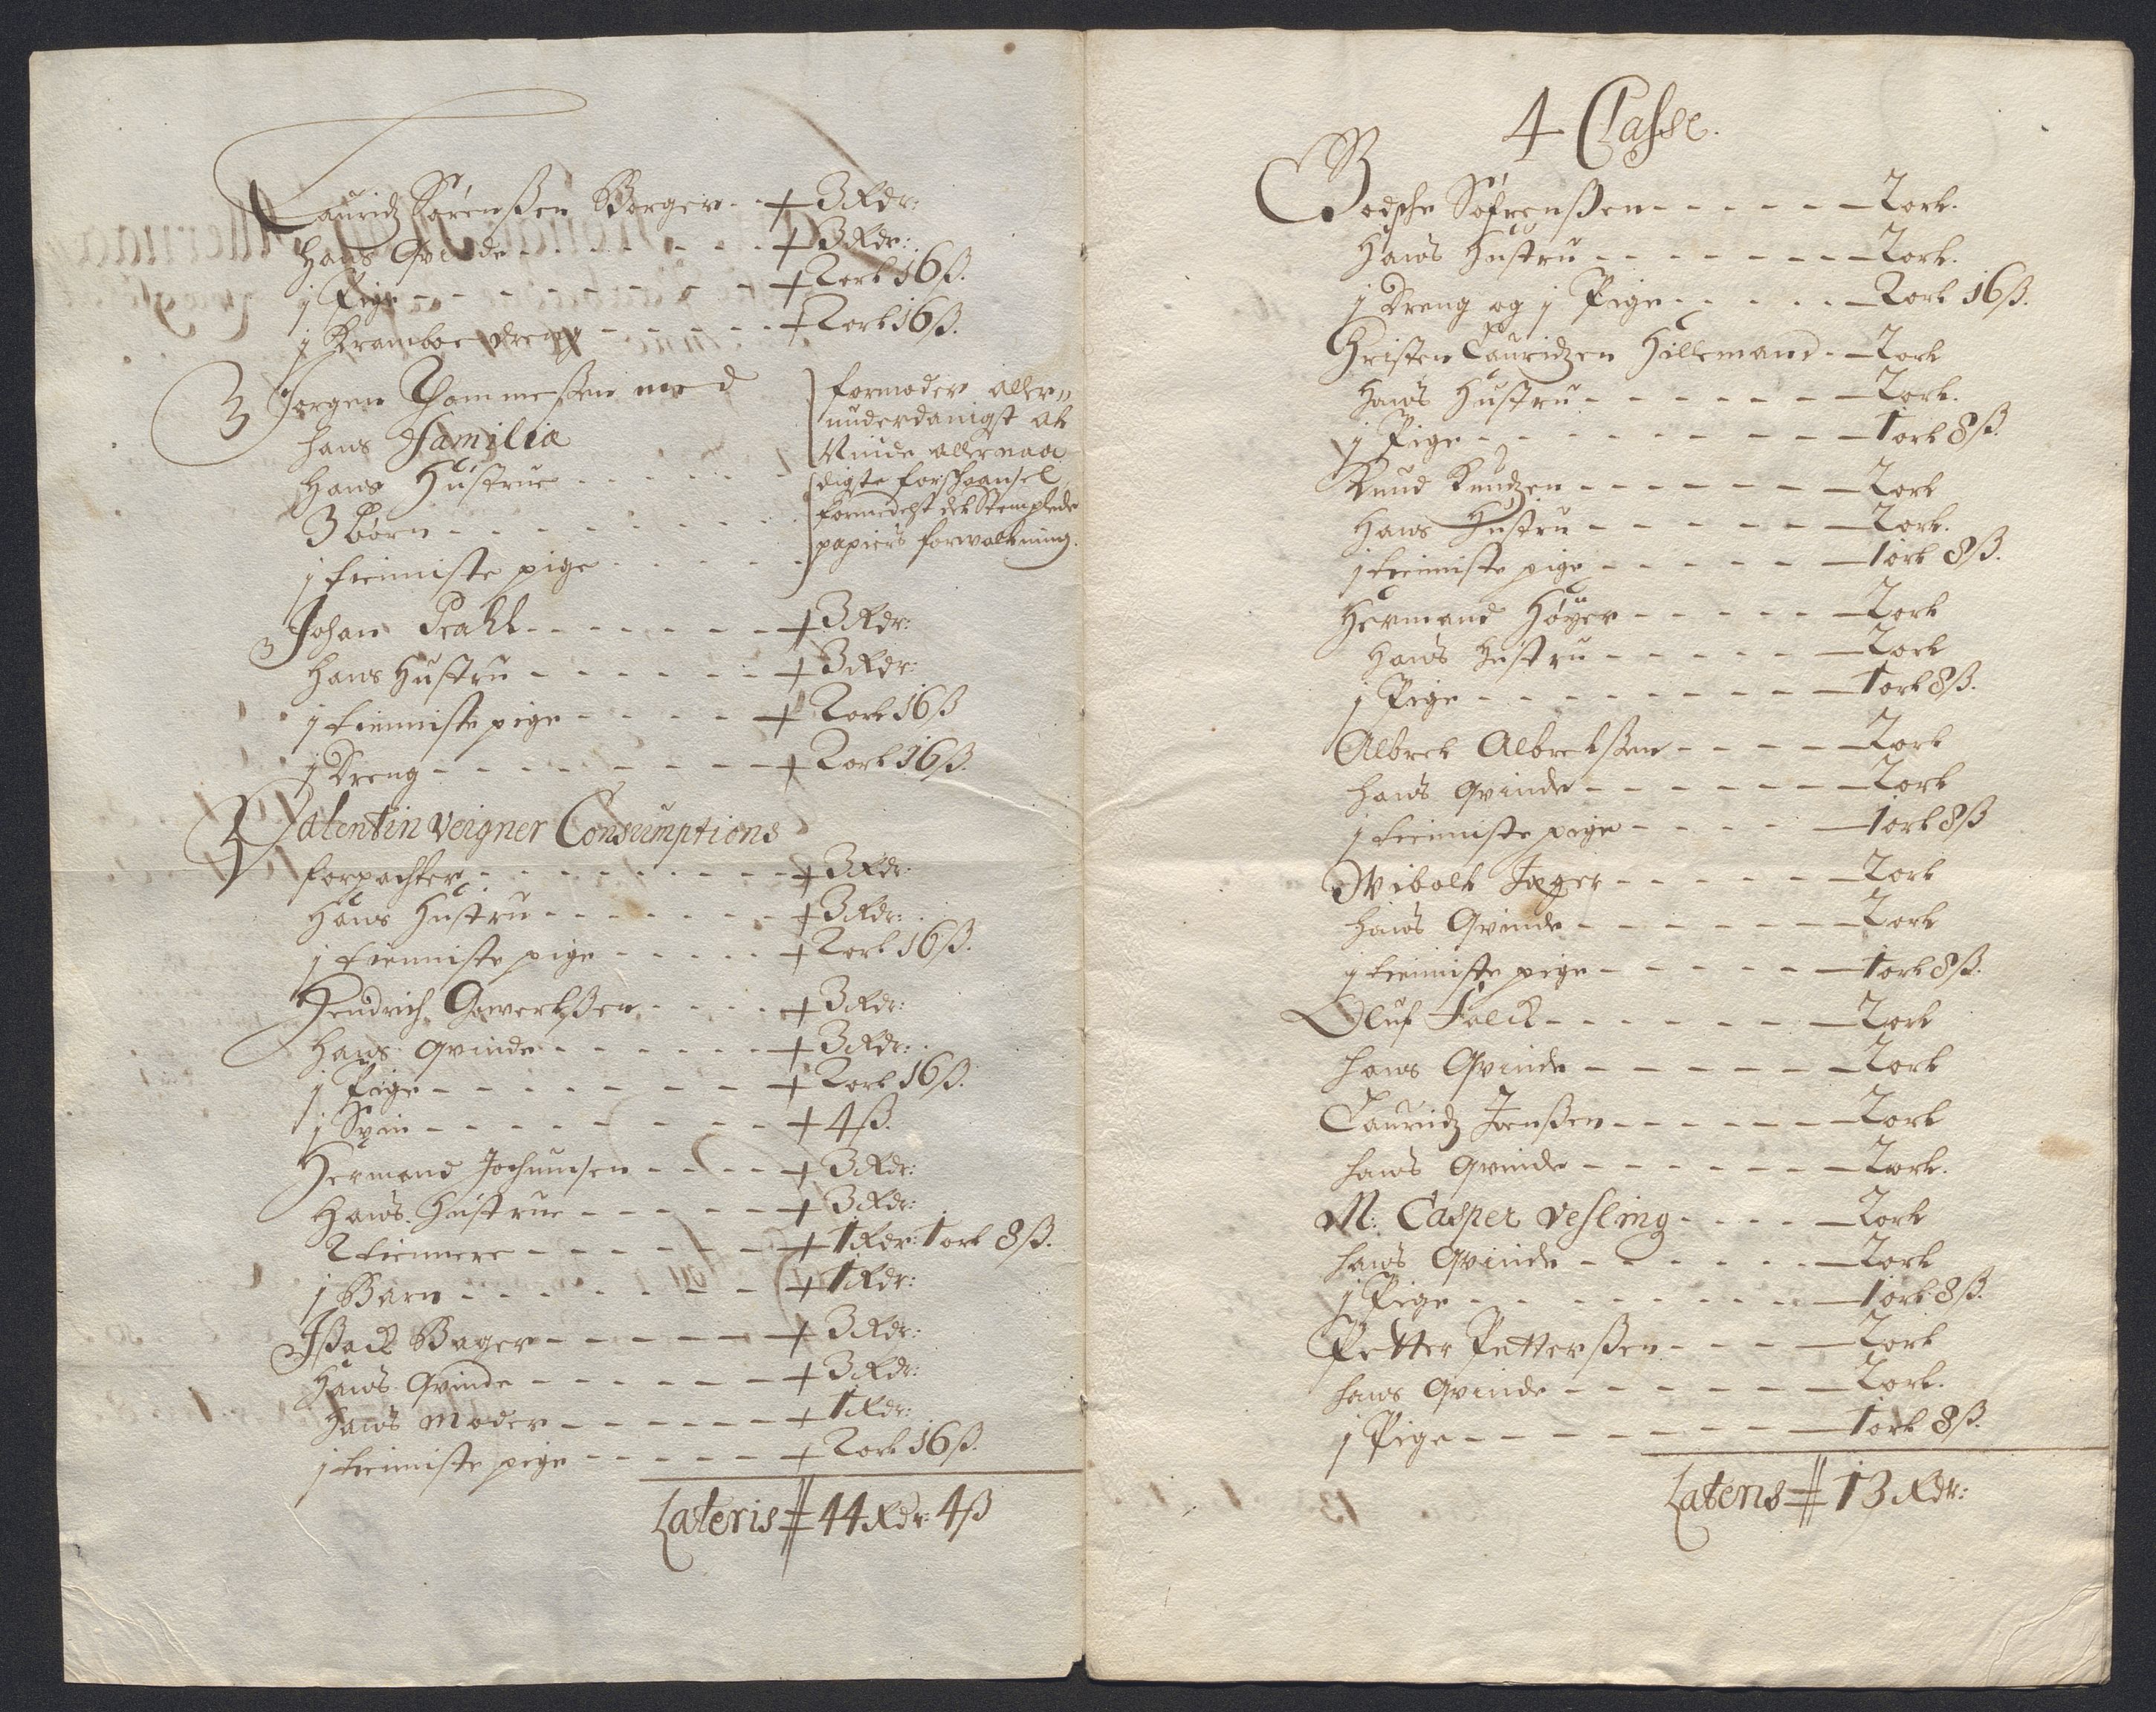 Lauridz Sørenßen Borger - - + 3 Rdr:
Hans Qvinde - - - - - - + 3 Rdr:
j Pige - - - - - - - - + 2 ort 16 ß.
j Kramboe dreng - - - - - + 2 ort 16 ß.
3 Jørgen Thommeßen med
hans Familia
Hans Hustrue - - - - - -
3 børn - - - - - - - -
j tienniste pige - - - - - -
formoder aller„
underdanigst at
Niude allernaa
digste forschaansel
formedelst det Stemplede
papiers forvaltning.
3 Johan Prahl - - - - - - + 3 Rdr:
Hans Hustru - - - - - - + 3 Rdr:
j tienniste pige - - - - + 2 ort 16 ß
j Dreng - - - - - - - - + 2 ort 16 ß.
3 Valentin Veigner Consumptions
forpachter - - - - - - - - + 3 Rdr:
Hans Hustru - - - - - - - + 3 Rdr:
j tienniste pige - - - - - + 2 ort 16 ß.
Hendrich Gaverthßen - - - - + 3 Rdr:
Hans Qvinde - - - - - - + 3 Rdr:
j Pige - - - - - - - - + 2 ort 16 ß.
j Svin - - - - - - - - + 4 ß.
Hermand Jochumsen - - - - + 3 Rdr:
Hans Hustrue - - - - - + 3 Rdr:
2 tiennere - - - - - - + 1 Rdr: 1 ort 8 ß.
j Barn - - - - - - - - + 1 Rdr:
Ißack Bager - - - - - + 3 Rdr:
Hans Qvinde - - - - - - + 3 Rdr:
Hans Moder - - - - - - + 1 Rdr:
j tienniste pige - - - - - + 2 ort 16 ß.
Lateris 44 Rdr: 4 ß
4 Classe.
Godsche Søfrenßen - - - - - - 2 ort.
Hans Hustru - - - - - - - 2 ort.
j Dreng og j Pige - - - - - 2 ort 16 ß.
Christen Lauridzen Hillemand - 2 ort
Hans Hustru - - - - - - - 2 ort.
j Pige - - - - - - - - - 1 ort 8 ß.
Knud Knudzen - - - - - - - 2 ort
Hans Hustru - - - - - - 2 ort.
j tienniste pige - - - - - - 1 ort 8 ß.
Hermand Høyer - - - - - 2 ort
Hans Hustru - - - - - - 2 ort
j Pige - - - - - - - - - 1 ort 8 ß.
Albret Albretßen - - - - - 2 ort
Hans Qvinde - - - - - - - 2 ort
j tienniste pige - - - - - 1 ort 8 ß
Wibolt Jæger - - - - - - 2 ort
Hans Qvinde - - - - - - - 2 ort
j tienniste pige - - - - - - 1 ort 8 ß.
Oluf Falck - - - - - - - 2 ort
Hans Qvinde - - - - - - 2 ort
Lauridz Jenßen - - - - - - 2 ort
Hans Qvinde - - - - - - - 2 ort.
M: Casper Vesling - - - - 2 ort
Hans Qvinde - - - - - - 2 ort
j Pige - - - - - - - - 1 ort 8 ß.
Petter Petterßen - - - - 2 ort
Hans Qvinde - - - - - - - 2 ort.
j Pige - - - - - - - - - 1 ort 8 ß.
Lateris 13 Rdr: